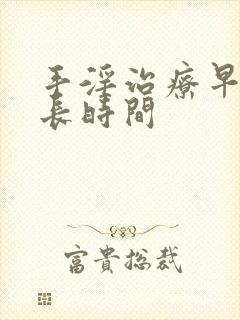 手淫治療早
長時間
富貴總裁